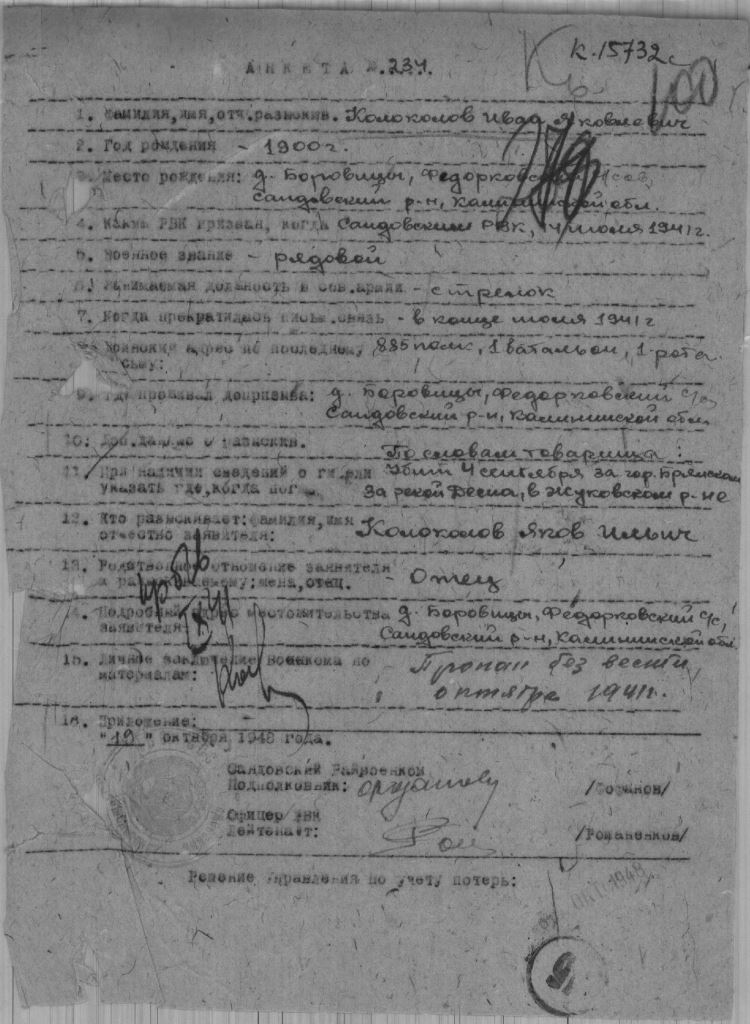 к. 15732с
АНКЕТА № 234.
100
1. Фамилия, имя, отч. разыскив. Колоколов Иван Яковлевич
2. Год рождения - 1900 г.
3. Место рождения: д. Боровицы, Федорковский с/сов,
Сандовский р-н, Калининской обл.
4. Каким РВК призван, когда Сандовским РВК, 14 июля 1941 г.
5. Военное звание - рядовой
6. Занимаемая должность в сов. армии - стрелок
7. Когда прекратилась письм. связь - в конце июля 1941 г
8. Воинский адрес по последнему 885 полк, 1 батальон, 1 рота.
письму:
9. Где проживал допризыва: д. Боровицы, Федорковский с/с,
Сандовский р-н, Калининской обл.
10. Доп. данные о разыскив.
По словам товарища:
11. При наличии сведений о гибели Убит 4 сентября за гор. Брянском
указать где, когда погиб за рекой Десна, в Жуковском р-не
12. Кто разыскивает: фамилия, имя
отчество заявителя: Колоколов Яков Ильич
13. Родственное отношение заявителя
к разыскиваемому: жена, отец. - Отец
14. Подробный адрес местожительства д. Боровицы, Федорковский с/с,
заявителя: Сандовский р-н, Калининской обл.
15. Личное заключение военкома по - Пропал без вести
материалам: октябрь 1941 г.
16. Приложение:
"19" октября 1948 года.
Сандовский Райвоенком
Подполковник: /Боранов/
Офицер РВК
Лейтенант: /Романенков/
Решение Управления по учету потерь:
ОКТ 1948